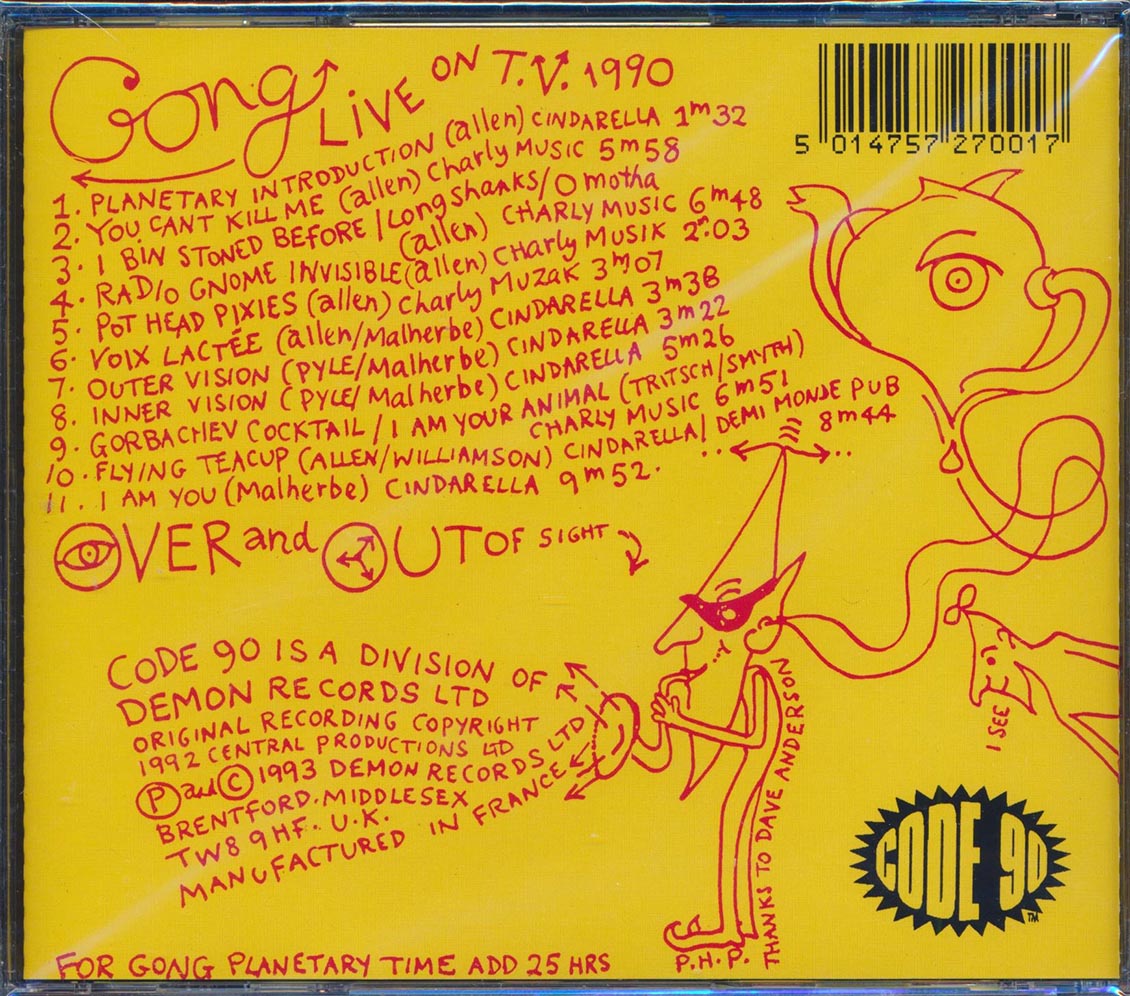 Gong LIVE ON T.V. 1990
1. PLANETARY INTRODUCTION (allen) CINDARELLA 1m32
2. YOU CANT KILL ME (allen) Charly MUSIC 5m58
3. I BIN STONED BEFORE / LONG SHANKS / O motha
(allen) CHARLY MUSIC 6m48
4. RADIO GNOME INVISIBLE (allen) CHARLY MUSIK 2m03
5. POT HEAD PIXIES (allen) Charly MUZAK 3m07
6. VOIX LACTÉE (allen/Malherbe) CINDARELLA 3m38
7. OUTER VISION (PYLE/Malherbe) CINDARELLA 3m22
8. INNER VISION (PYLE/Malherbe) CINDARELLA 5m26
9. GORBACHEV COCKTAIL / I AM YOUR ANIMAL (TRITSCH/SMYTH)
CHARLY MUSIC 6m51
10. FLYING TEACUP (ALLEN/WILLIAMSON) CINDARELLA / DEMI MONDE PUB
8m44
11. I AM YOU (Malherbe) CINDARELLA 9m52.
OVER and OUT OF SIGHT
CODE 90 IS A DIVISION OF
DEMON RECORDS LTD
ORIGINAL RECORDING COPYRIGHT
1992 CENTRAL PRODUCTIONS LTD
Ⓟ and © 1993 DEMON RECORDS LTD
BRENTFORD. MIDDLESEX
TW8 9HF. U.K.
MANUFACTURED IN FRANCE
FOR GONG PLANETARY TIME ADD 25 HRS
5 014757 270017
I SEE
THANKS TO DAVE ANDERSON
P.H.P.
CODE 90
TM